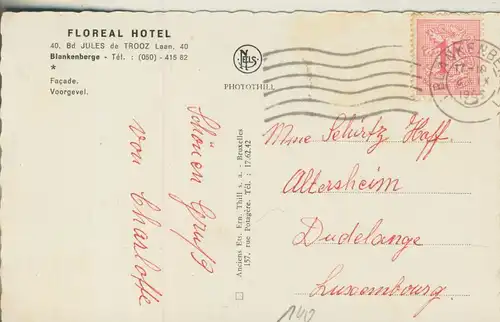 FLOREAL HOTEL
40, Bd JULES de TROOZ Laan, 40
Blankenberge - Tél. : (050) - 415 82
Façade.
Voorgevel.
NELS
PHOTOTHILL
Anciens Etn. Ern. Thill s. a. - Bruxelles
157, rue Potagère. Tél. : 17.62.42
Schönen Gruß
von Charlotte
Mme Schirtz Hoff.
Altersheim
Dudelange
Luxembourg.
140